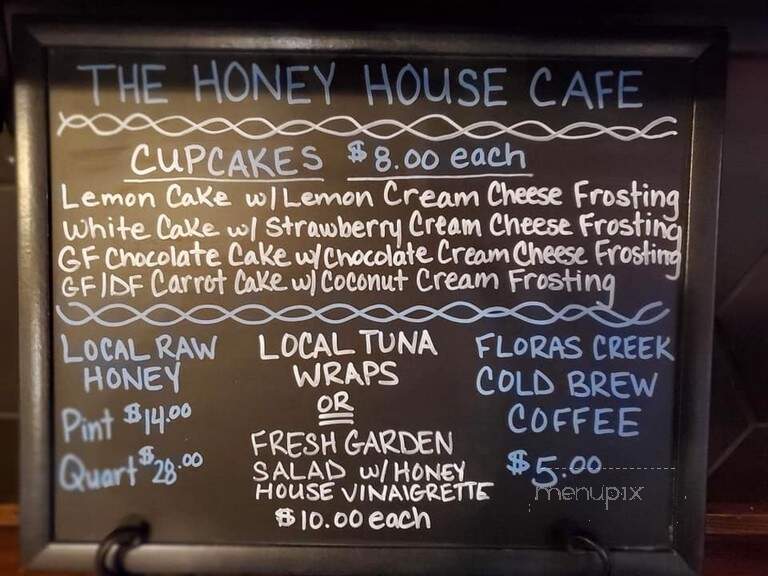 THE HONEY HOUSE CAFE
CUPCAKES $8.00 each
Lemon Cake w/ Lemon Cream Cheese Frosting
White Cake w/ Strawberry Cream Cheese Frosting
GF Chocolate Cake w/ Chocolate Cream Cheese Frosting
GF/DF Carrot Cake w/ Coconut Cream Frosting
LOCAL RAW
HONEY
Pint $14.00
Quart $28.00
LOCAL TUNA
WRAPS
OR
FRESH GARDEN
SALAD w/ HONEY
HOUSE VINAIGRETTE
$10.00 each
FLORAS CREEK
COLD BREW
COFFEE
$5.00
menupix